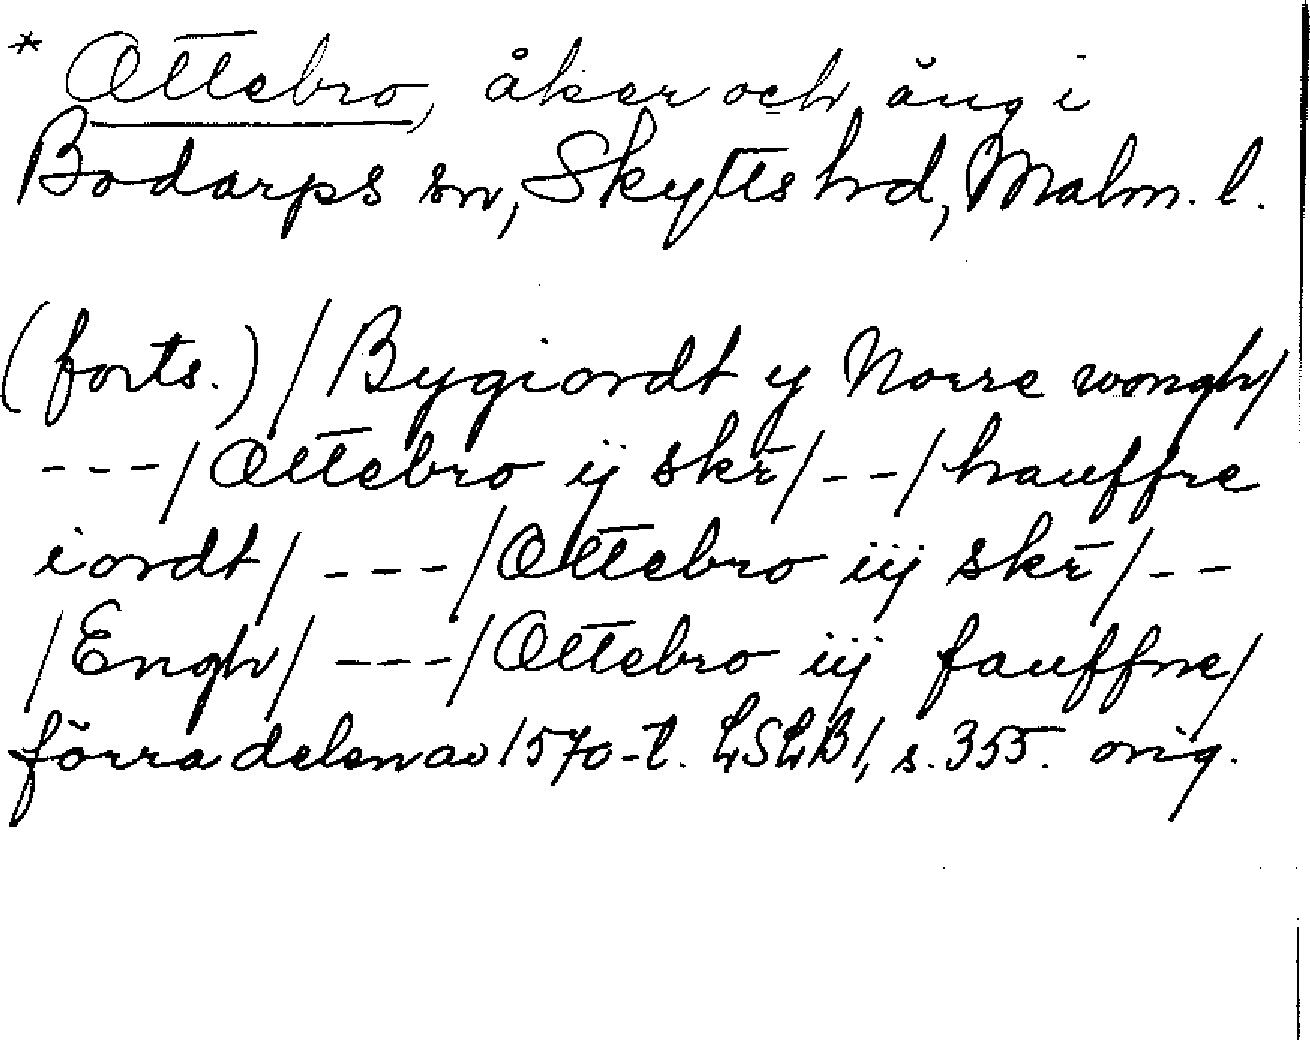 * Ottebro, åker och äng i
Bodarps sn, Skytts hd, Malm. l.
(forts.) / Bygiordt y Norre wongh/
---/Ottebro ij skr̄/--/hauffre
iordt/ ---/Ottebro iij skr̄/--
/Engh/ ---/Ottebro iij fauffne/
förra delen av 1570-t. LSLB 1, s. 355. orig.